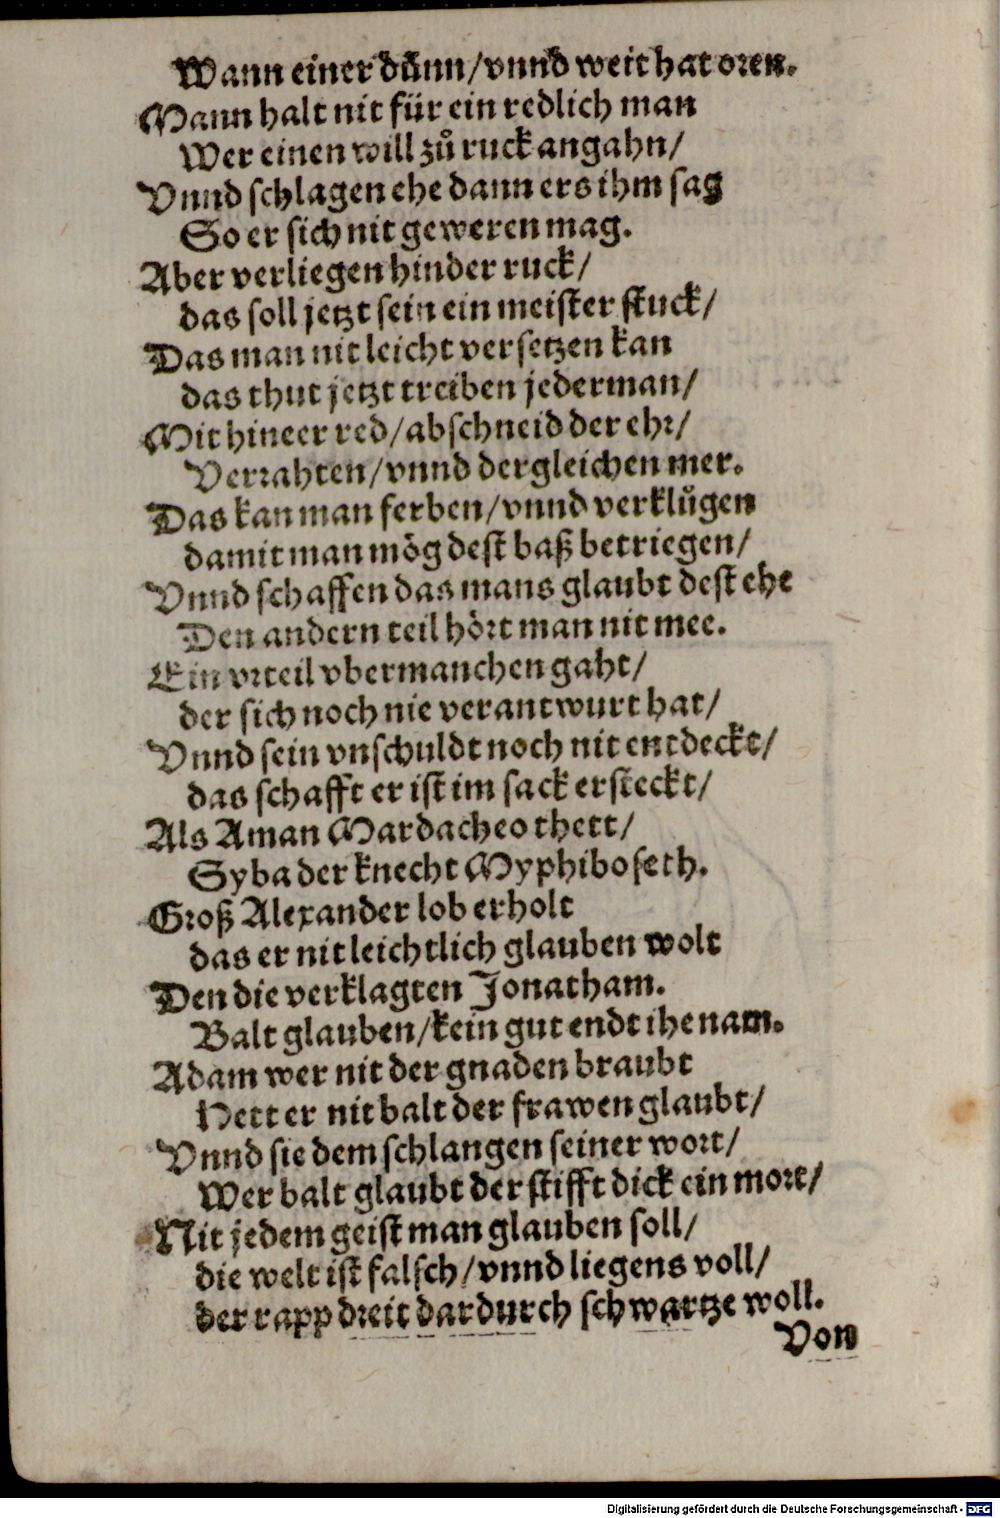 Wann einer dünn/vnnd weit hat oren.
Mann halt nit für ein redlich man
Wer einen will zů ruck angahn/
Vnnd schlagen ehe dann ers ihm sag
So er sich nit geweren mag.
Aber verliegen hinder ruck/
das soll jetzt sein ein meister stuck/
Das man nit leicht versetzen kan
das thut jetzt treiben jederman/
Mit hineer red/abschneid der ehr/
Verrahten/vnnd dergleichen mer.
Das kan man ferben/vnnd verklůgen
damit man mög dest baß betriegen/
Vnnd schaffen das mans glaubt dest ehe
Den andern teil hört man nit mee.
Ein vrteil vber manchen gaht/
der sich noch nie verantwurt hat/
Vnnd sein vnschuldt noch nit entdeckt/
das schafft er ist im sack ersteckt/
Als Aman Mardacheo thett/
Syba der knecht Myphiboseth.
Groß Alexander lob erholt
das er nit leichtlich glauben wolt
Den die verklagten Jonatham.
Balt glauben/kein gut endt ihe nam.
Adam wer nit der gnaden braubt
Hett er nit balt der frawen glaubt/
Vnnd sie dem schlangen seiner wort/
Wer balt glaubt der stifft dick ein mort/
Nit jedem geist man glauben soll/
die welt ist falsch/vnnd liegens voll/
der rapp dreit dardurch schwartze woll.
Von
Digitalisierung gefördert durch die Deutsche Forschungsgemeinschaft - DFG